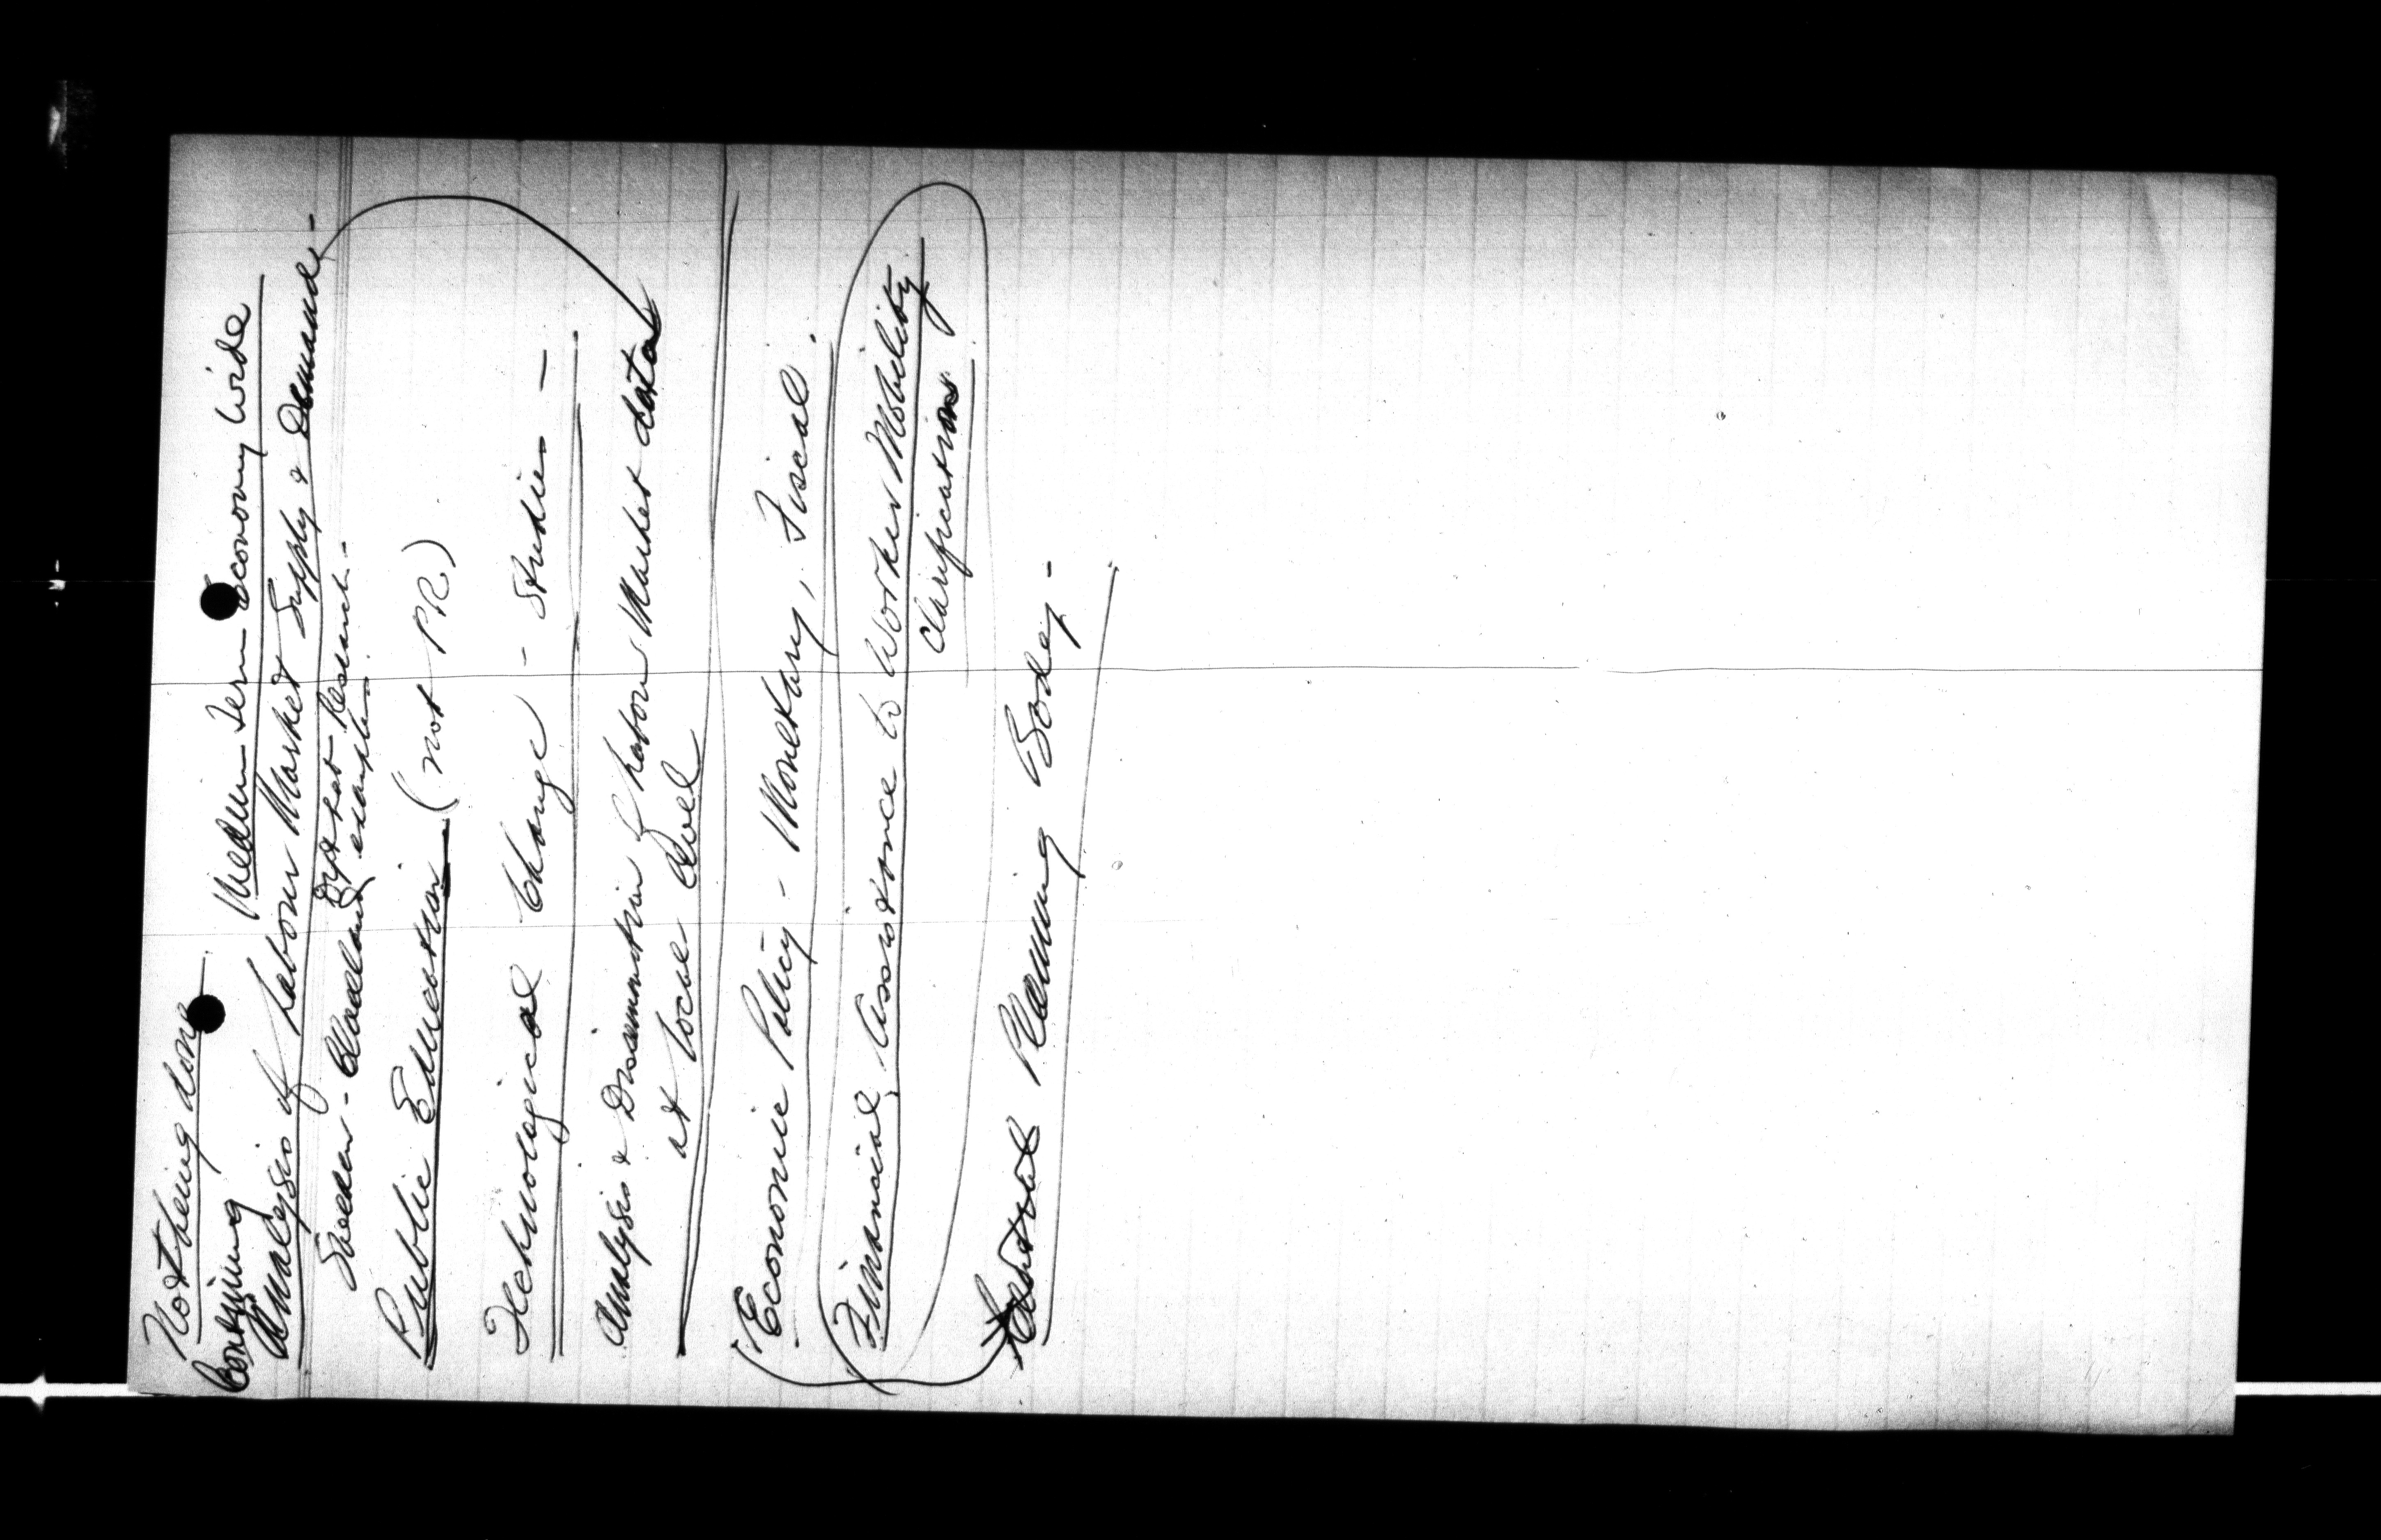 Nothing done
Continuing Medium Term Economy Wide
Analysis of Labour Market Supply & Demand -
Dept Lab Research -
Sweden - example
Public Education (not PR)
Technological Change - Studies -
Analysis & Dissemination of Labour Market data
at local level
Economic Policy - Monetary, Fiscal.
Financial Assistance to Worker Mobility
clarifications
Planning Body -